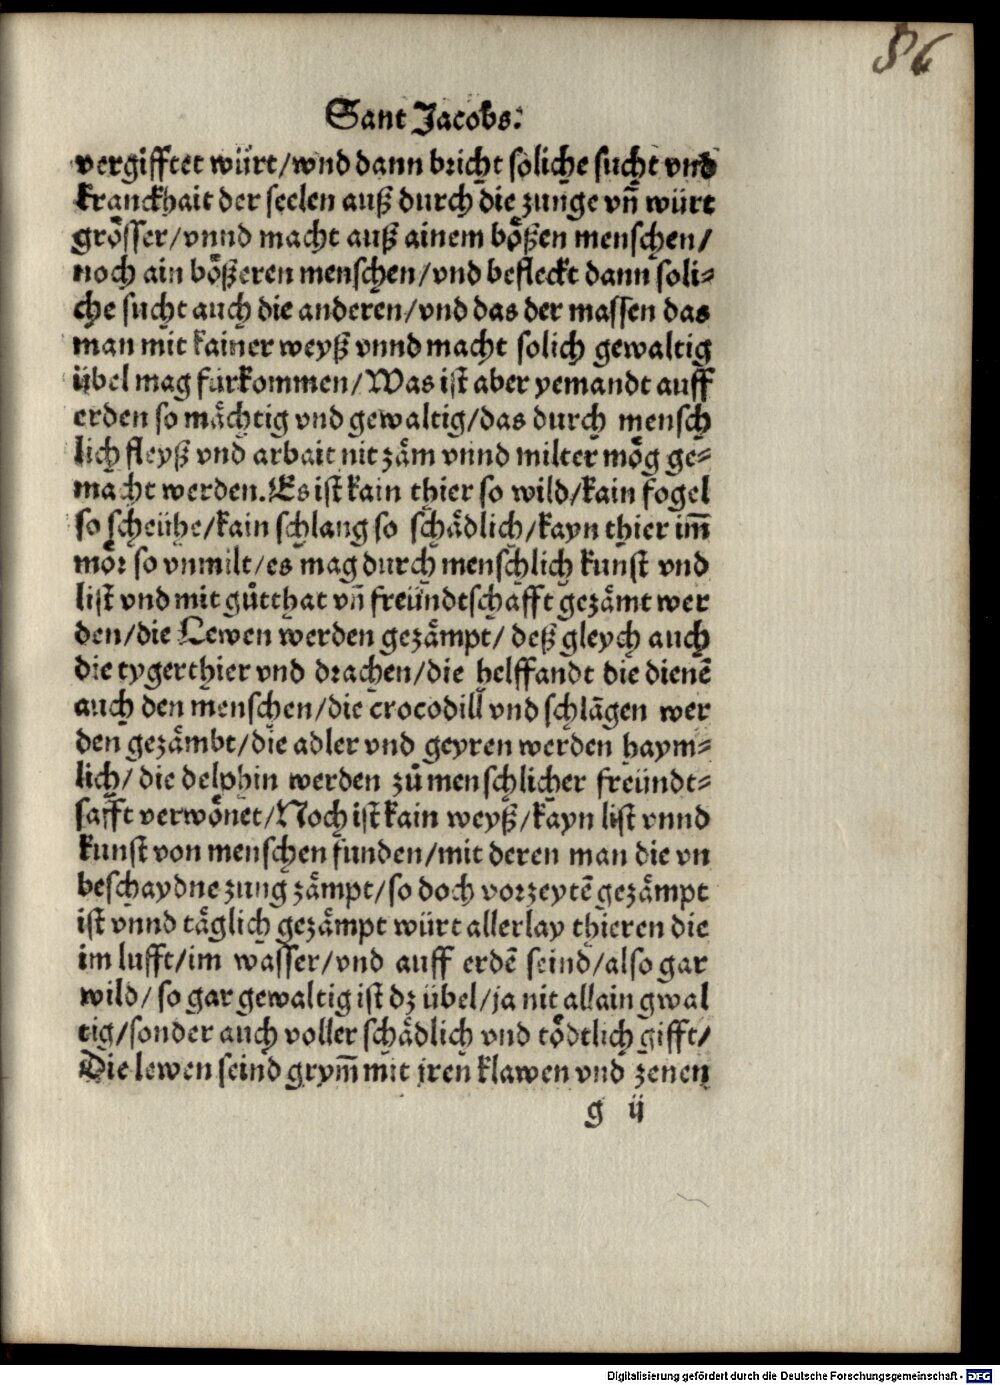 86
Sant Jacobs.
vergifftet würt/wnd dann bricht soliche sucht vnd
kranckhait der seelen auß durch die zunge vn̄ würt
grösser/vnnd macht auß ainem bößen menschen/
noch ain bößeren menschen/vnd befleckt dann soli⸗
che sucht auch die anderen/vnd das der massen das
man mit kainer weyß vnnd macht solich gewaltig
übel mag fürkommen/Was ist aber yemandt auff
erden so mächtig vnd gewaltig/das durch mensch
lich fleyß vnd arbait nit zäm vnnd milter mög ge⸗
macht werden. Es ist kain thier so wild/kain fogel
so scheühe/kain schlang so schädlich/kayn thier im̄
mör so vnmilt/es mag durch menschlich kunst vnd
list vnd mit gůtthat vn̄ freündtschafft gezämt wer
den/die Lewen werden gezämpt/ deß gleych auch
die tygerthier vnd drachen/die helffandt die dienē
auch den menschen/die crocodill vnd schlāgen wer
den gezämbt/die adler vnd geyren werden haym⸗
lich/ die delphin werden zů menschlicher freündt⸗
safft verwönet/Noch ist kain weyß/kayn list vnnd
kunst von menschen funden/mit deren man die vn
beschaydne zung zämpt/so doch vorzeytē gezämpt
ist vnnd täglich gezämpt würt allerlay thieren die
im lufft/im wasser/vnd auff erdē seind/also gar
wild/ so gar gewaltig ist dz übel/ja nit allain gwal
tig/sonder auch voller schädlich vnd tödtlich gifft/
Die lewen seind grym̄ mit jren klawen vnd zenen
g ij
Digitalisierung gefördert durch die Deutsche Forschungsgemeinschaft - DFG